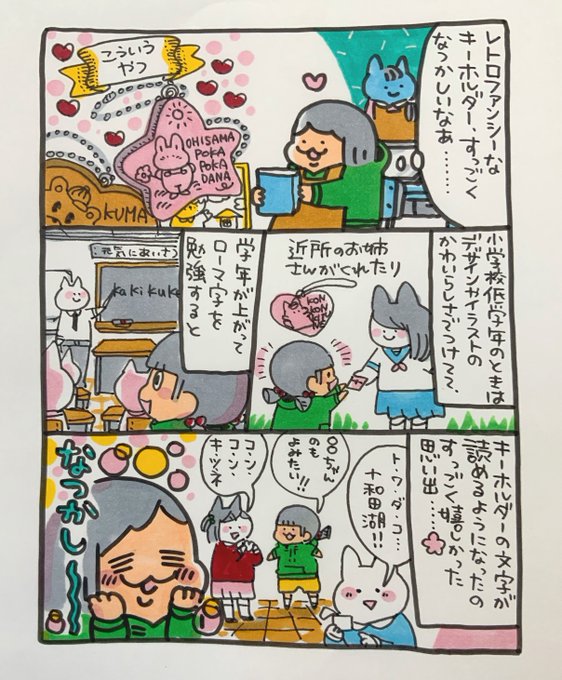 レトロファンシーな
キーホルダー、すっごく
なつかしいなぁ………
こういう
やつ
OHISAMA
POKA
POKA
DANA
KUMA
小学校低学年のときは
デザインやイラストの
かわいらしさでつけてて、
近所のお姉
さんがくれたり
KON
KON
学年が上がって
ローマ字を
勉強すると
元気にあいさつ
kaki kuke
キーホルダーの文字が
読めるようになったの
すっごく嬉しかった
思い出……
ト・ワ・ダ・コ…
十和田湖!!
〇〇ちゃん
のも
よみたい!!
コン・
コン・
キツネ
なつかしー